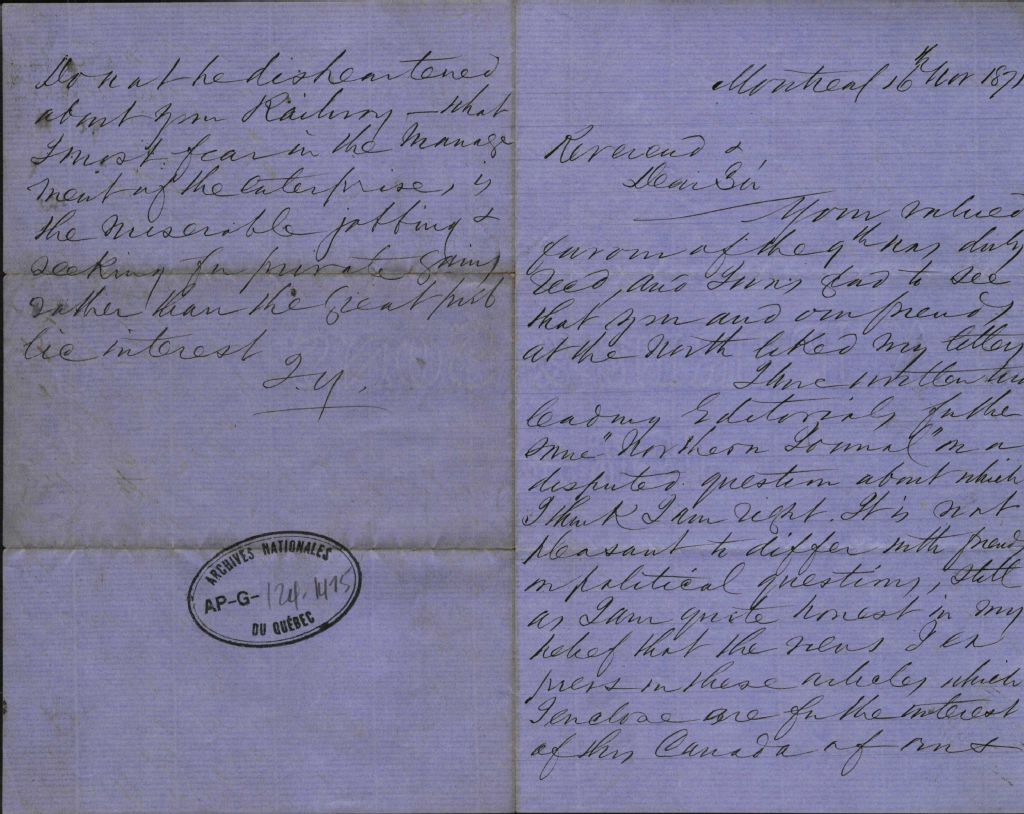 Do not be disheartened
about your Railway – what
I most fear in the manage
ment of the enterprise, is
the miserable jobbing &
seeking for private gains
rather than the great pub
lic interest
ARCHIVES NATIONALES
AP-G-124-1415
DU QUÉBEC
Montreal 16th Nov 1871
Reverend &
Dear Sir
Your valued
favour of the 9th was duly
recd, and I was glad to see
that you and our friends
at the North liked my letters
I have written two
leading Editorials for the
same "Northern Journal" on a
disputed question about which
I think I am right. It is not
pleasant to differ with friends
on political questions, still
as I am quite honest in my
belief that the views I ex
press in these articles which
I enclose are for the interest
of this Canada of ours